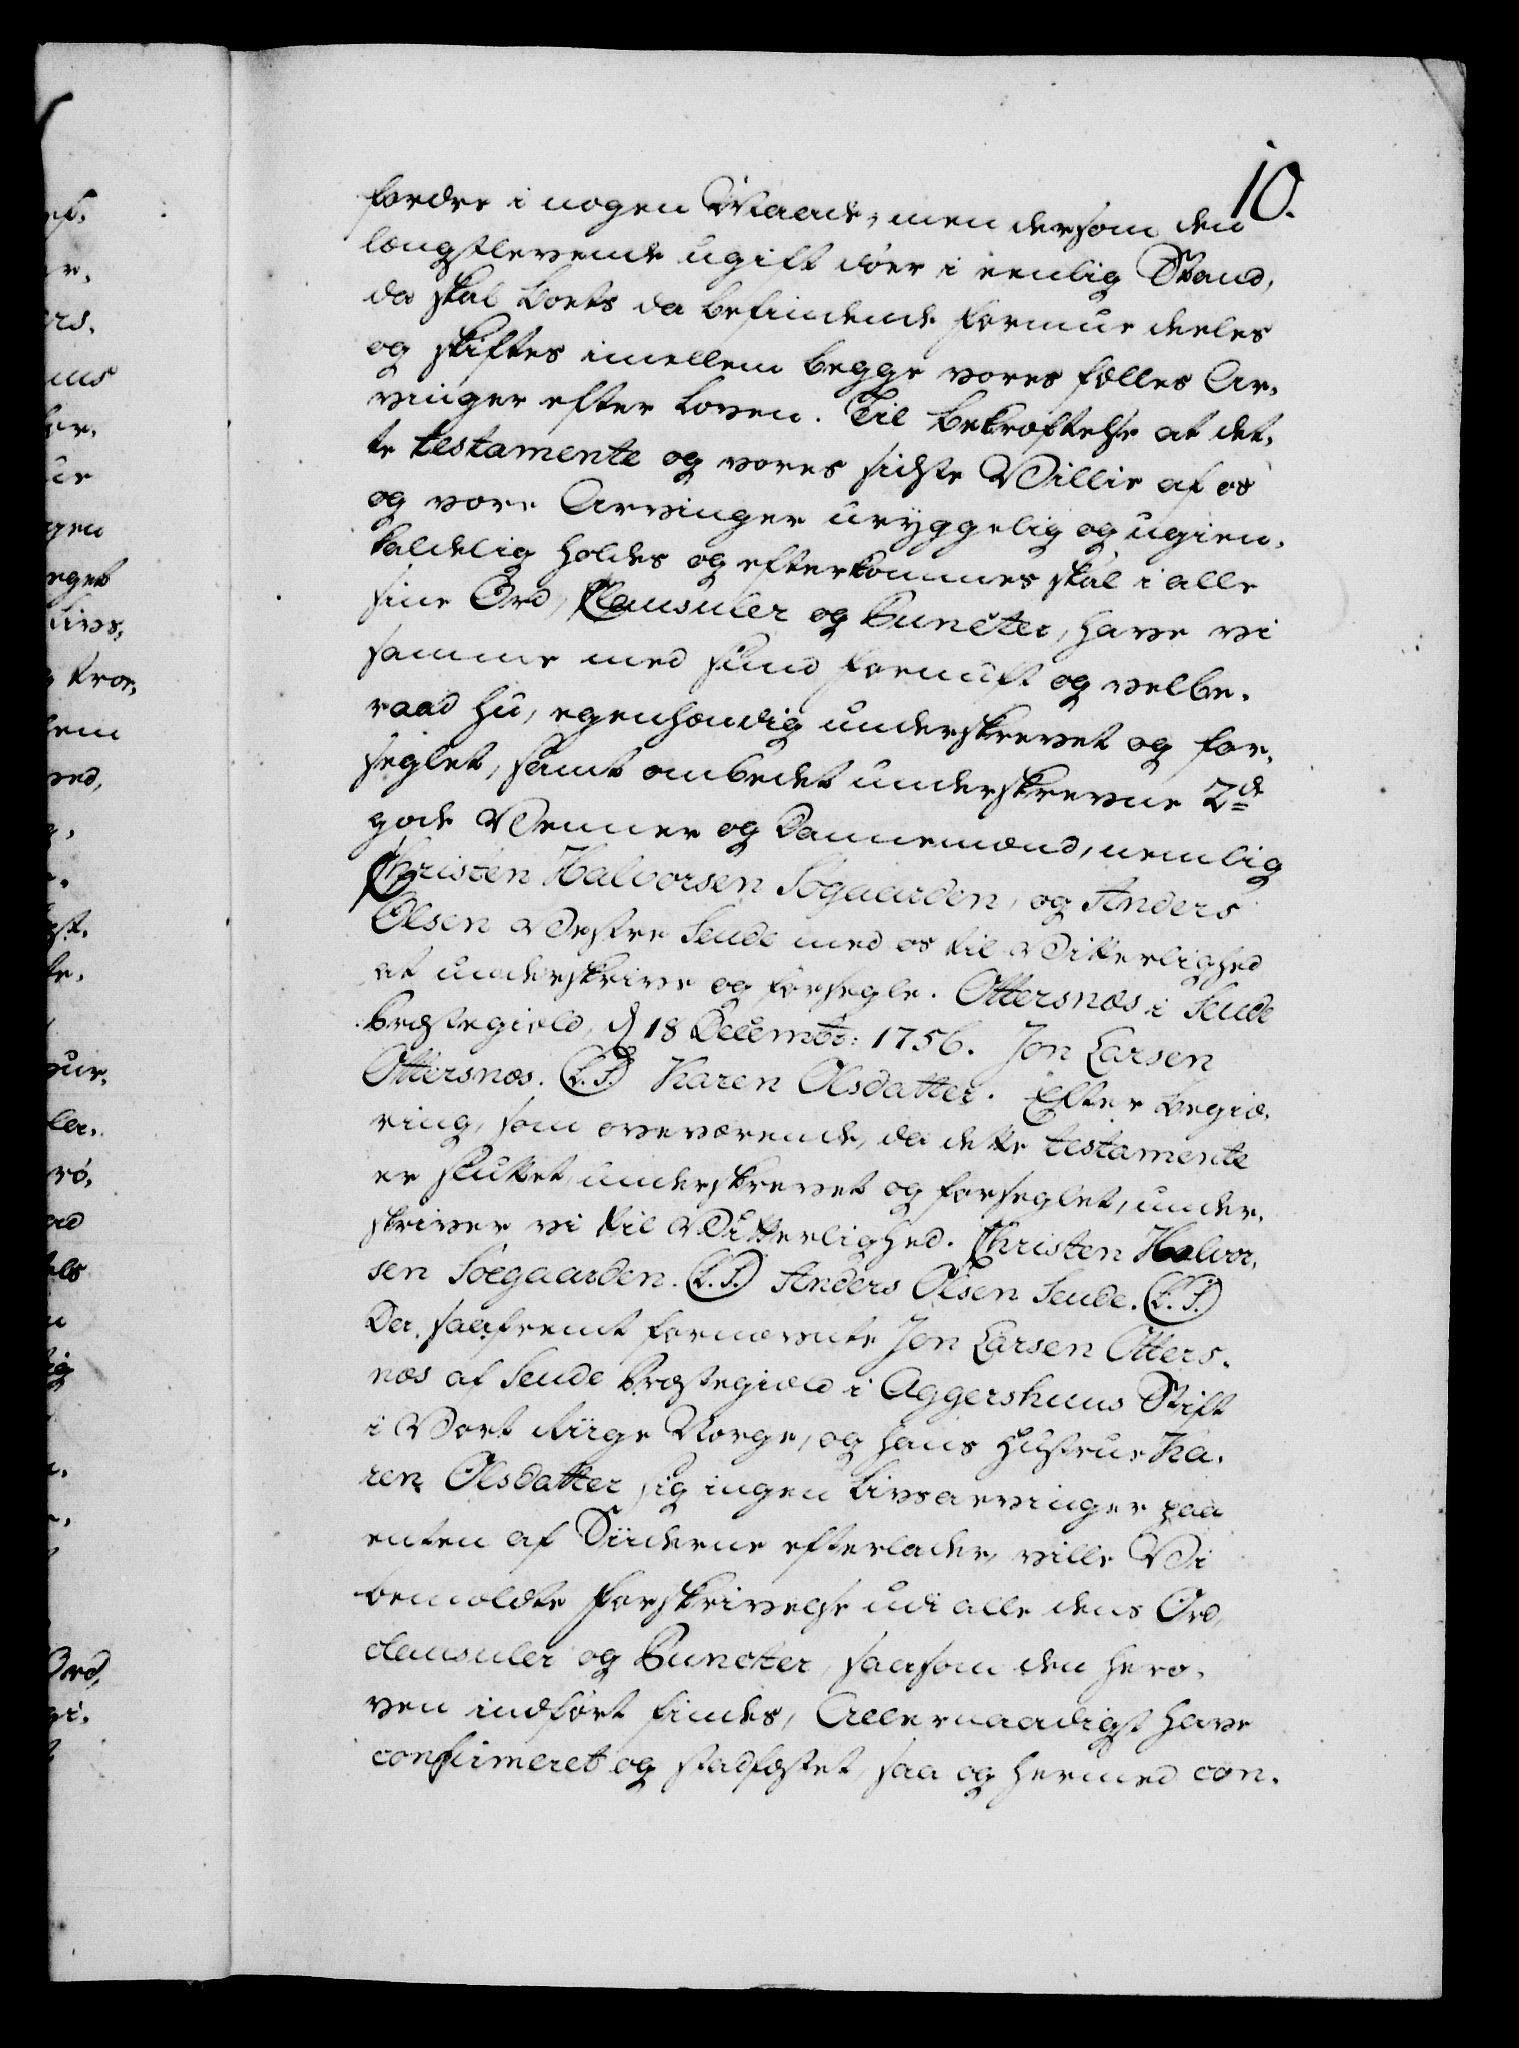 10.
fordre i nogen Maade, men dersom den
længstlevende ugift döer i eenlig Stand,
da skal Boets da befindende Formue deeles
og skiftes imellem begge vores fælles Ar,
vinger efter Loven. Til Bekræftelse at det,
te testamente og vores sidste Villie af os
og vore Arvinger uryggelig og ugien,
kaldelig holdes og efterkommes skal i alle
sine Ord, Clausuler og Puncter, have vi
samme med sund Fornuft og velbe,
raad Hu, egenhændig underskrevet og for,
seglet, samt ombedet underskrevne 2de
gode Venner og Dannemænd, nemlig
Christen Halvorsen Sögaarden, og Anders
Olsen Vestre Seude med os til Vitterlighed
at underskrive og forsegle. Ottersnæs i Seude
Præstegield, d 18 Decembr: 1756. Jon Larsen
Ottersnæs. (L.S.) Karen Olsdatter. Efter Begiæ,
ring, som overværende, da dette testamente
er sluttet, underskrevet og forseglet, under,
skriver vi til Vitterlighed. Christen Halvor,
sen Söegaarden. (L.S.) Anders Olsen Seude. (L.S.)
Da, saafremt fornævnte Jon Larsen Otters,
næs af Seude Præstegield i Aggershuus Stift
i Vort Riige Norge, og hans Hustrue Ka,
ren Olsdatter sig ingen Livsarvinger paa
enten af Siiderne efterlader, ville Vi
bemeldte Forskrivelse udi alle dens Ord,
clausuler og Puncter, saasom den hero,
ven indfört findes, Allernaadigst have
confirmeret og stadfæstet, saa og hermed con,